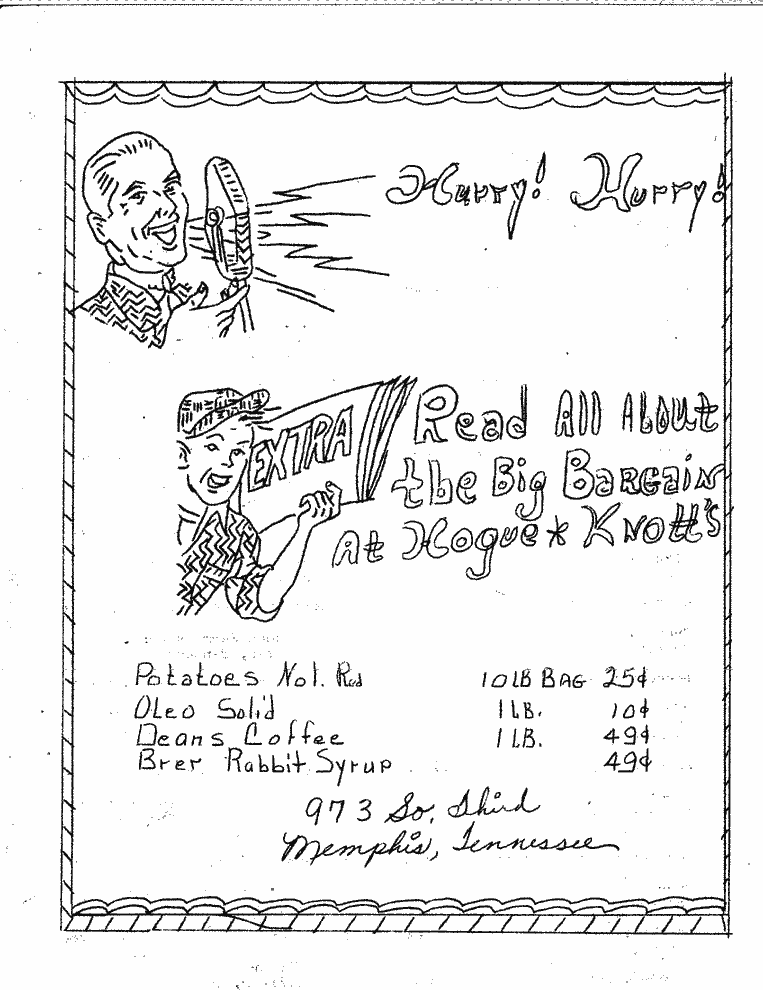 Hurry! Hurry!
EXTRA
Read All About
the Big Bargain
At Hogue * Knott's
Potatoes No1. Red 10 LB BAG 25¢
Oleo Solid 1 LB. 10¢
Deans Coffee 1 LB. 49¢
Brer Rabbit Syrup 49¢
973 So. Third
Memphis, Tennessee